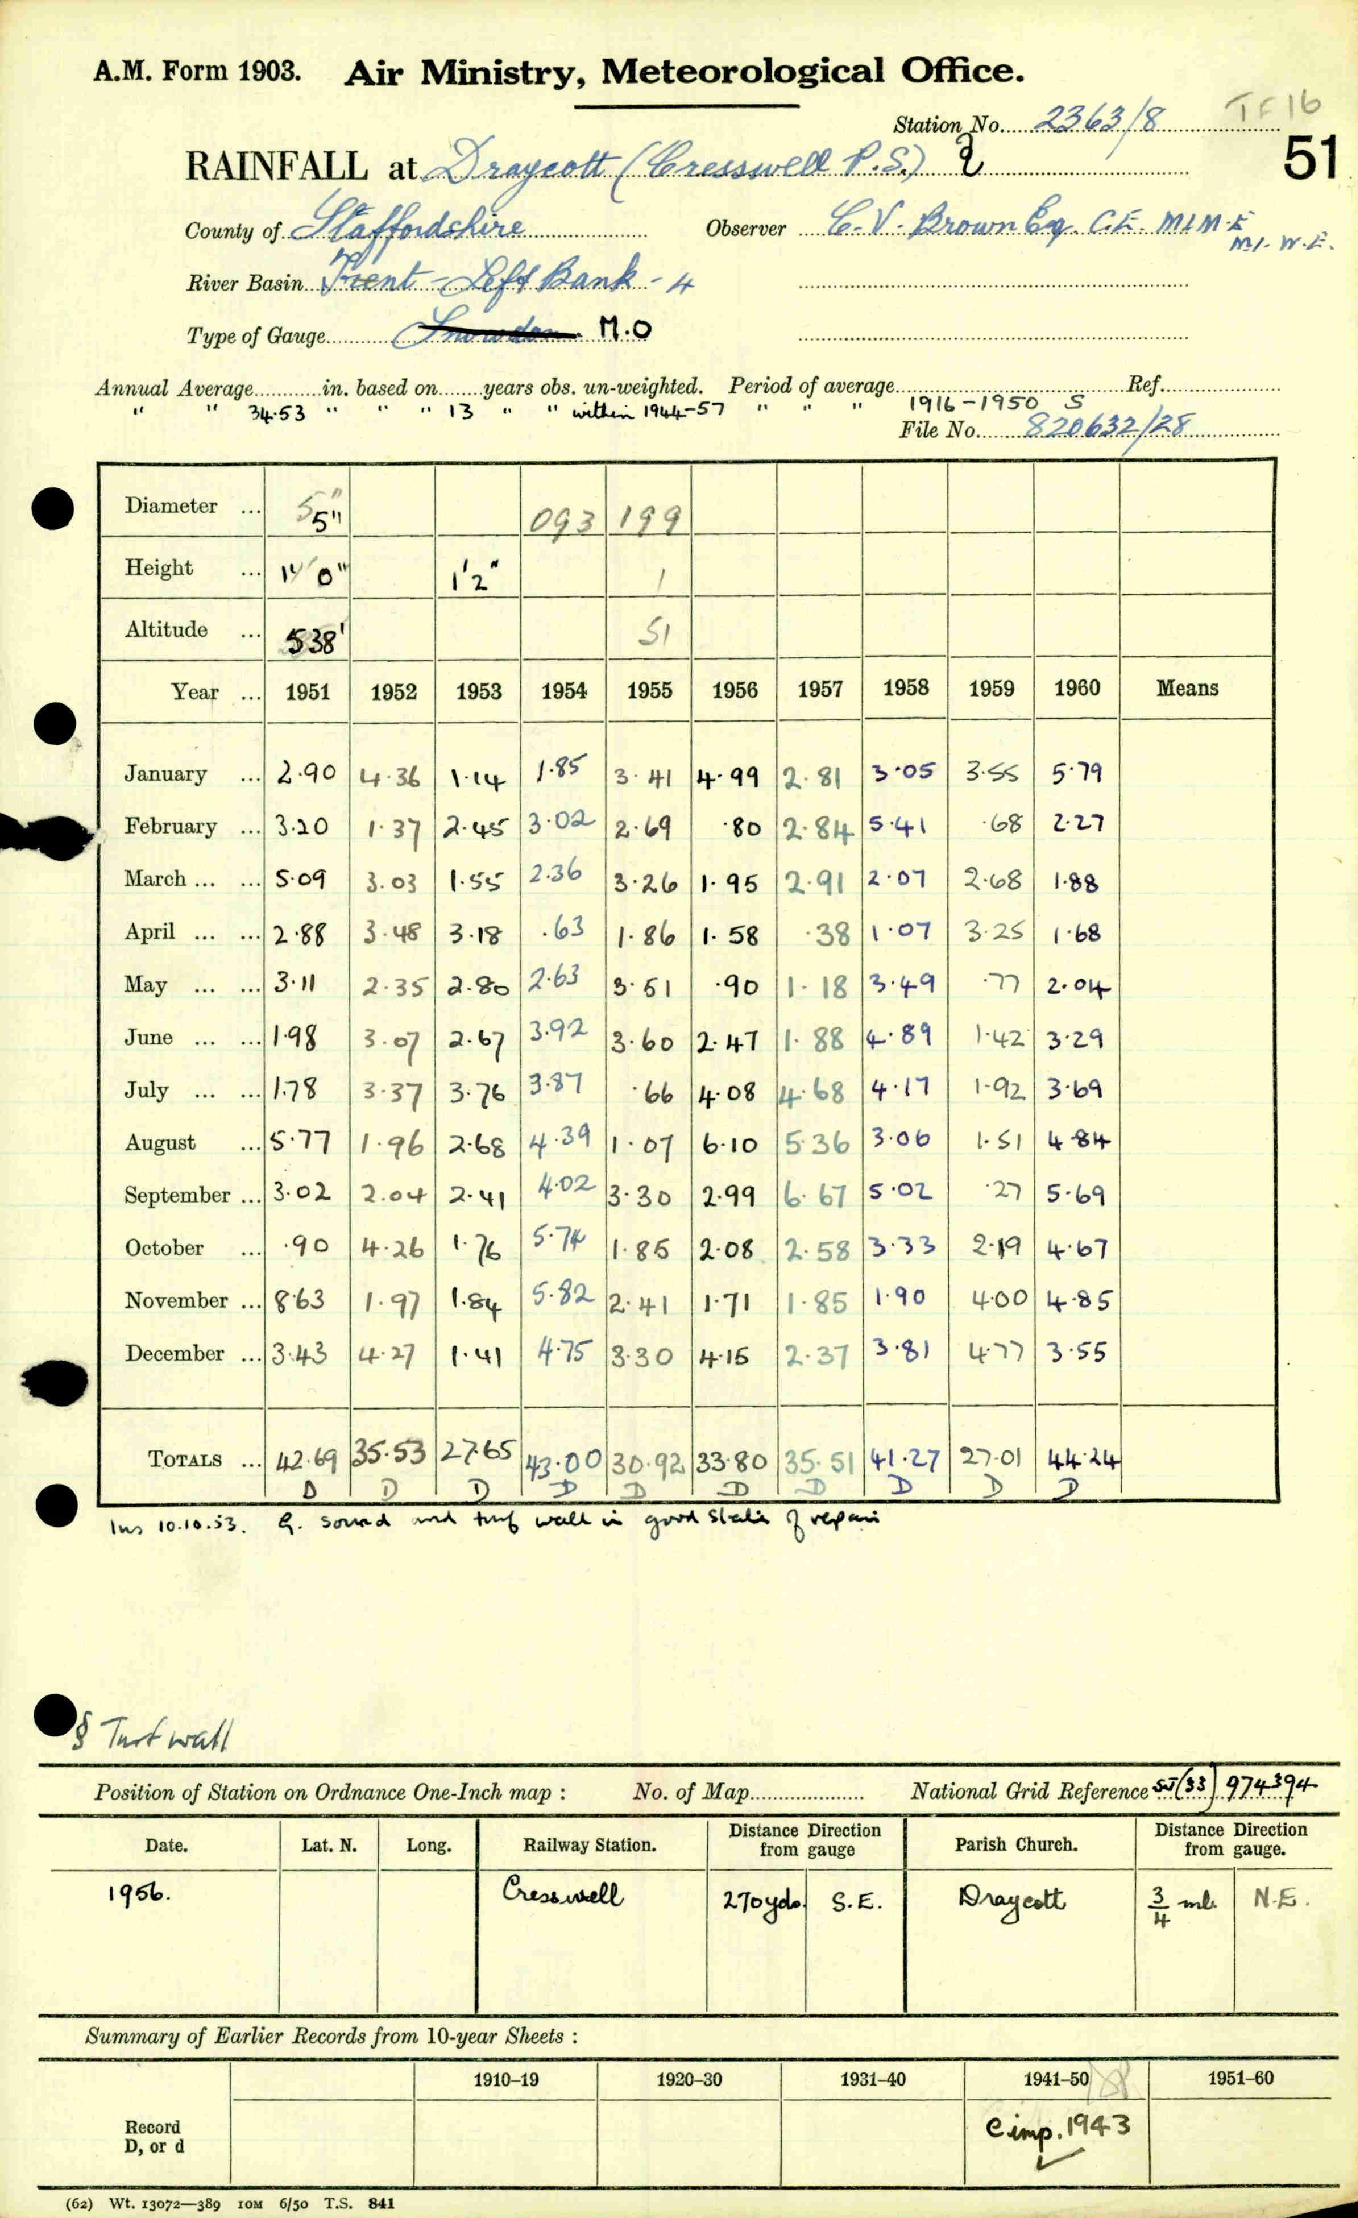 A.M. Form 1903. Air Ministry, Meteorological Office.
Station No. 2363/8 TF16
RAINFALL at Draycott (Cresswell P.S.) 51
County of Staffordshire Observer C.V. Brown Esq. C.E. M.I.M.E
M.I.W.E.
River Basin Trent - Left Bank - 4
Type of Gauge Snowdon M.O
Annual Average in. based on years obs. un-weighted. Period of average Ref.
" " 34.53 " " " 13 " " within 1944-57 " " " 1916-1950 S
File No. 820632/28
Diameter ... 5" 5" 093 199
Height ... 1' 0" 1'2" 1
Altitude ... 538' 51
Year ... 1951 1952 1953 1954 1955 1956 1957 1958 1959 1960 Means
January ... 2.90 4.36 1.14 1.85 3.41 4.99 2.81 3.05 3.55 5.79
February ... 3.20 1.37 2.45 3.02 2.69 .80 2.84 5.41 .68 2.27
March ... ... 5.09 3.03 1.55 2.36 3.26 1.95 2.91 2.07 2.68 1.88
April ... ... 2.88 3.48 3.18 .63 1.86 1.58 .38 1.07 3.25 1.68
May ... ... 3.11 2.35 2.80 2.63 3.51 .90 1.18 3.49 .77 2.04
June ... ... 1.98 3.07 2.67 3.92 3.60 2.47 1.88 4.89 1.42 3.29
July ... ... 1.78 3.37 3.76 3.87 .66 4.08 4.68 4.17 1.92 3.69
August ... 5.77 1.96 2.68 4.39 1.07 6.10 5.36 3.06 1.51 4.84
September ... 3.02 2.04 2.41 4.02 3.30 2.99 6.67 5.02 .27 5.69
October ... .90 4.26 1.76 5.74 1.85 2.08 2.58 3.33 2.19 4.67
November ... 8.63 1.97 1.84 5.82 2.41 1.71 1.85 1.90 4.00 4.85
December ... 3.43 4.27 1.41 4.75 3.30 4.15 2.37 3.81 4.77 3.55
TOTALS ... 42.69 35.53 27.65 43.00 30.92 33.80 35.51 41.27 27.01 44.24
D D D D D D D D D D
Ins 10.10.53. G. sound and turf wall in good state of repair
§ Turf wall
Position of Station on Ordnance One-Inch map : No. of Map National Grid Reference SJ(33) 974394
Date. Lat. N. Long. Railway Station. Distance from gauge Direction Parish Church. Distance from gauge. Direction
1956. Cresswell 270 yds. S.E. Draycott 3/4 ml. N.E.
Summary of Earlier Records from 10-year Sheets :
1910–19 1920–30 1931–40 1941–50 1951–60
Record
D, or d
C imp. 1943
(62) Wt. 13072—389 10M 6/50 T.S. 841